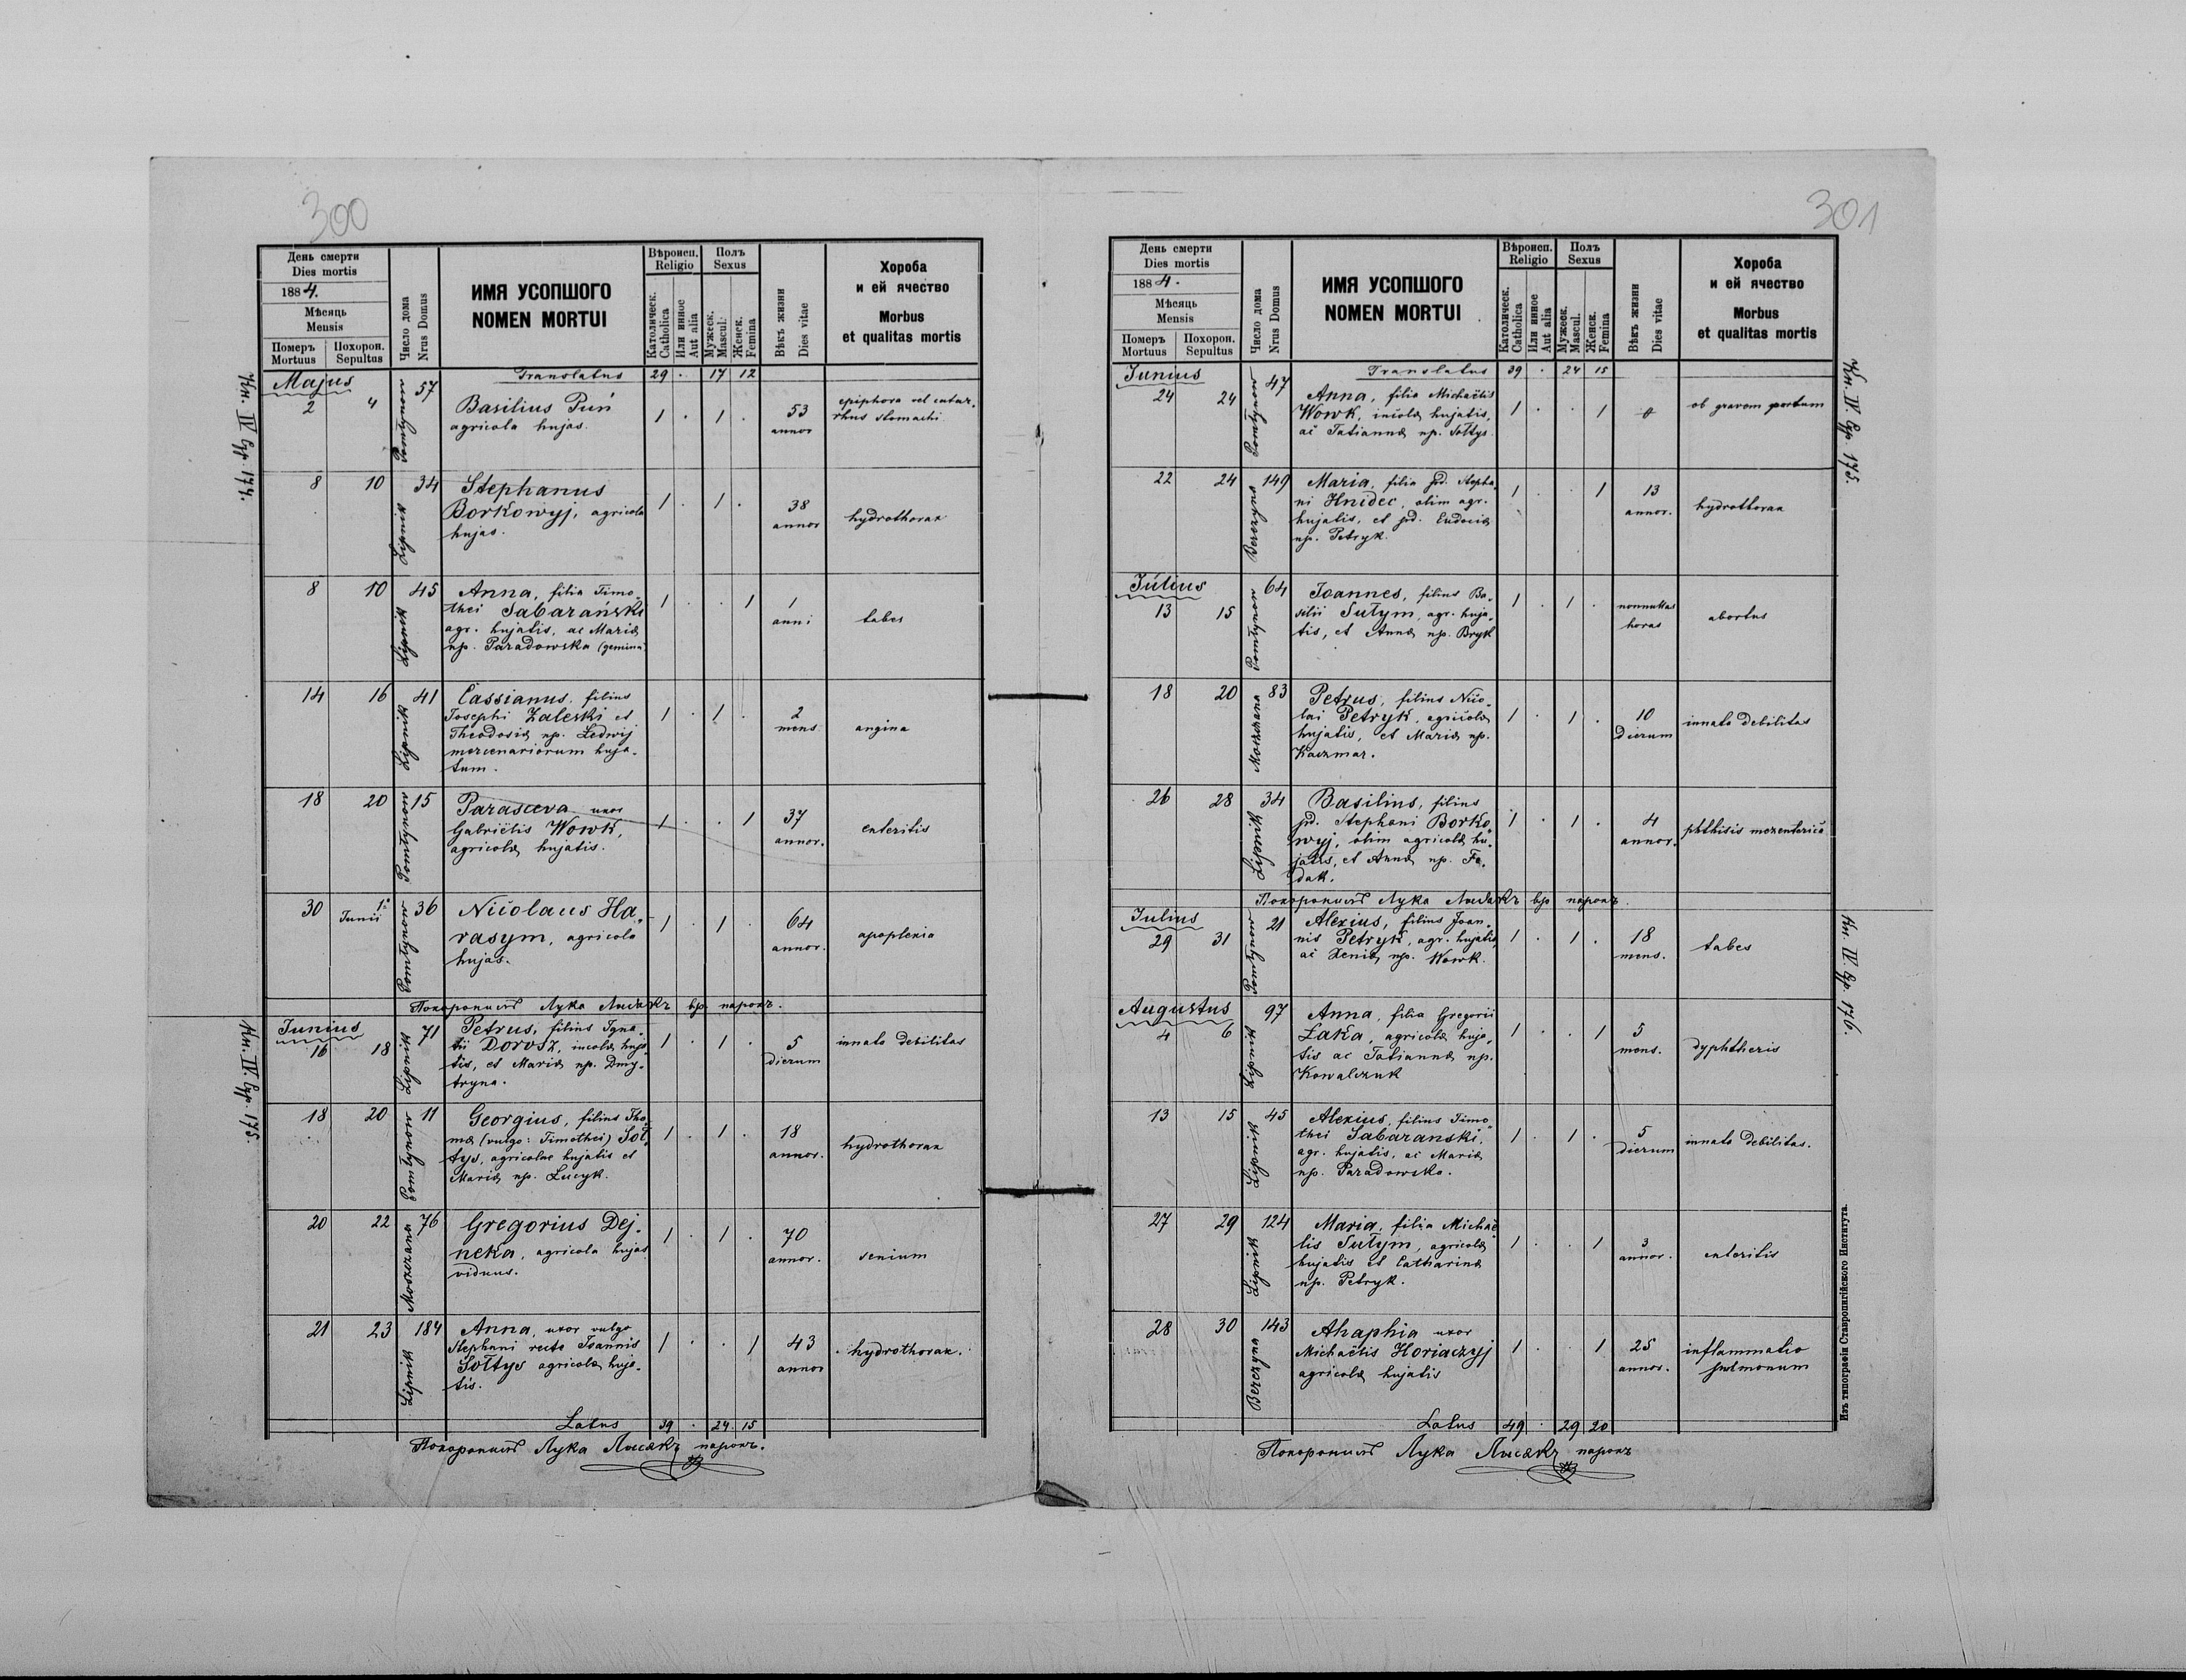 300
День смерти
Dies mortis
1884.
Мѣсяць
Mensis
Померъ
Mortuus
Похорон.
Sepultus
Число дома
Nrus Domus
ИМЯ УСОПШОГО
NOMEN MORTUI
Вѣроисп.
Religio
Католическ.
Catholica
Или инное
Aut alia
Полъ
Sexus
Мужеск.
Mascul.
Женск.
Femina
Вѣкъ жизни
Dies vitae
Хороба
и ей ячество
Morbus
et qualitas mortis
Translatus 29 . 17 12
Majus
2 4 Pomłynow 57
Basilius Puń
agricola hujas.
1 . 1 .
53
annor
epiphora vel catar-
rhus stomachi
8 10 Lipnik 34
Stephanus
Borkowyj, agricola
hujas.
1 . 1 .
38
annor
hydrothorax
8 10 Lipnik 45
Anna, filia Timo-
thei Sabarański
agr. hujatis, ac Mariæ
np. Paradowska (gemina)
1 . . 1
1
anni
tabes
14 16 Lipnik 41
Cassianus, filius
Josephi Zaleski et
Theodosiæ np. Ledwij
mercenariorum huja-
tum.
1 . 1 .
2
mens
angina
18 20 Pomłynow 15
Parasceva uxor
Gabriëlis Wowk,
agricolæ hujatis.
1 . . 1
37
annor.
enteritis
30 1º Junii Pomłynow 36
Nicolaus Ha-
rasym, agricola
hujas.
1 . 1 .
64
annor.
apoplexia
Похоронилъ Лука Лисакъ вр парохъ.
Junius
16 18 Lipnik 71
Petrus, filius Igna-
tii Dorosz, incolæ huja-
tis, et Mariæ np. Dmy-
tryna.
1 . 1 .
5
dierum
innata debilitas
18 20 Pomłynow 11
Georgius, filius Tho-
mæ (vulgo: Timothei) Soł-
tys, agricolae hujatis et
Mariæ np. Łucyk.
1 . 1 .
18
annor.
hydrothorax
20 22 Moszczana 76
Gregorius Dej-
neka, agricola hujas
viduus.
1 . 1 .
70
annor.
senium
21 23 Lipnik 184
Anna, uxor vulgo
Stephani recte Joannis
Sołtys agricolæ huja-
tis.
1 . . 1
43
annor
hydrothorax.
Latus 39 . 24 15
Похоронилъ Лука Лисакъ парохъ.
Кн. IV. стр. 174.
Кн. IV. стр. 175.
301
День смерти
Dies mortis
1884.
Мѣсяць
Mensis
Померъ
Mortuus
Похорон.
Sepultus
Число дома
Nrus Domus
ИМЯ УСОПШОГО
NOMEN MORTUI
Вѣроисп.
Religio
Католическ.
Catholica
Или инное
Aut alia
Полъ
Sexus
Мужеск.
Mascul.
Женск.
Femina
Вѣкъ жизни
Dies vitae
Хороба
и ей ячество
Morbus
et qualitas mortis
Translatus 39 . 24 15
Junius
24 24 Pomłynow 47
Anna, filia Michaëlis
Wowk, incolæ hujatis,
ac Tatiannæ np. Sołtys.
1 . . 1
0
ob gravem partum
22 24 Berezyna 149
Maria, filia pd. Stepha-
ni Hnidec, olim agr.
hujatis, et pd. Eudociæ
np. Petryk.
1 . . 1
13
annor.
hydrothorax
Julius
13 15 Pomłynow 64
Joannes, filius Ba-
silii Sułym, agr. huja-
tis, et Annæ np. Bryk
1 . 1 .
nonnullas
horas
abortus
18 20 Moszczana 83
Petrus, filius Nico-
lai Petryk, agricolæ
hujatis, et Mariæ np.
Kaczmar.
1 . 1 .
10
dierum
innata debilitas
26 28 Lipnik 34
Basilius, filius
pd. Stephani Borko-
wyj, olim agricolæ hu-
jatis, et Annæ np. Fe-
dak.
1 . 1 .
4
annor.
phthisis mezenterica
Похоронилъ Лука Лисакъ вр парохъ.
Julius
29 31 Pomłynow 21
Alexius, filius Joan-
nis Petryk, agr. hujatis,
ac Xeniæ np. Wowk.
1 . 1 .
18
mens.
tabes
Augustus
4 6 Lipnik 97
Anna, filia Gregorii
Łaka, agricolæ huja-
tis ac Tatiannæ np.
Kowalczuk
1 . . 1
5
mens.
dyphtheris
13 15 Lipnik 45
Alexius, filius Timo-
thei Sabaranski,
agr. hujatis, ac Mariæ
np. Paradowska.
1 . 1 .
5
dierum
innata debilitas.
27 29 Lipnik 124
Maria, filia Michaë-
lis Sułym, agricolæ
hujatis et Catharinæ
np. Petryk.
1 . . 1
3
annor.
enteritis
28 30 Berezyna 143
Ahaphia uxor
Michaëlis Horiaczyj
agricolæ hujatis
1 . . 1
25
annor.
inflammatio
pulmonum
Latus 49 . 29 20
Похоронилъ Лука Лисакъ парохъ
Кн. IV. стр. 175.
Кн. IV. стр. 176.
Изъ типографіи Ставропигійского Института.